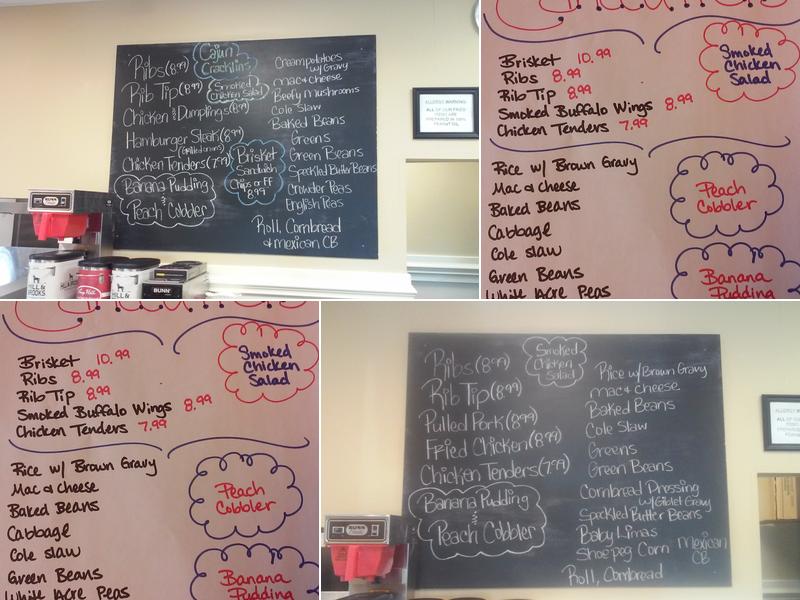 Ribs (8.99)
Rib Tip (8.99)
Chicken & Dumplings (8.99)
Hamburger Steak (8.99)
(Grilled onions)
Chicken Tenders (7.99)
Banana Pudding
&
Peach Cobbler
Cajun
Cracklins
Smoked
Chicken Salad
Brisket
Sandwich
Chips or FF
8.99
Cream potatoes
w/ Gravy
mac & cheese
Beefy mushrooms
Cole Slaw
Baked Beans
Greens
Green Beans
Speckled Butter Beans
Crowder Peas
English Peas
Roll, Cornbread
& mexican CB
ALLERGY WARNING:
ALL OF OUR FRIED
FOODS ARE
PREPARED IN 100%
PEANUT OIL
BUNN
BUNN
Brisket 10.99
Ribs 8.99
Rib Tip 8.99
Smoked Buffalo Wings 8.99
Chicken Tenders 7.99
Smoked
Chicken
Salad
Rice w/ Brown Gravy
Mac & Cheese
Baked Beans
Cabbage
Cole slaw
Green Beans
White Acre Peas
Peach
Cobbler
Banana
Pudding
Brisket 10.99
Ribs 8.99
Rib Tip 8.99
Smoked Buffalo Wings 8.99
Chicken Tenders 7.99
Smoked
Chicken
Salad
Rice w/ Brown Gravy
Mac & Cheese
Baked Beans
Cabbage
Cole slaw
Green Beans
White Acre Peas
Peach
Cobbler
Banana
Pudding
Ribs (8.99)
Rib Tip (8.99)
Pulled Pork (8.99)
Fried Chicken (8.99)
Chicken Tenders (7.99)
Banana Pudding
&
Peach Cobbler
Smoked
Chicken
Salad
Rice w/ Brown Gravy
mac & cheese
Baked Beans
Cole Slaw
Greens
Green Beans
Cornbread Dressing
w/ Giblet Gravy
Speckled Butter Beans
Baby Limas
Shoe peg Corn
Roll, Cornbread
Mexican
CB
BUNN